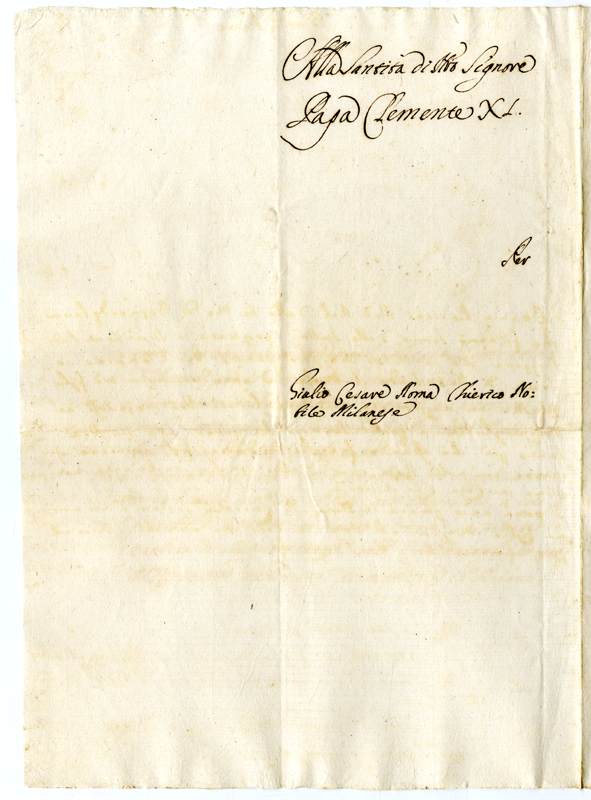 Alla Santità di Nro Signore
Papa Clemente XI.
Per
Giulio Cesare Roma Chierico No:
bile Milanese